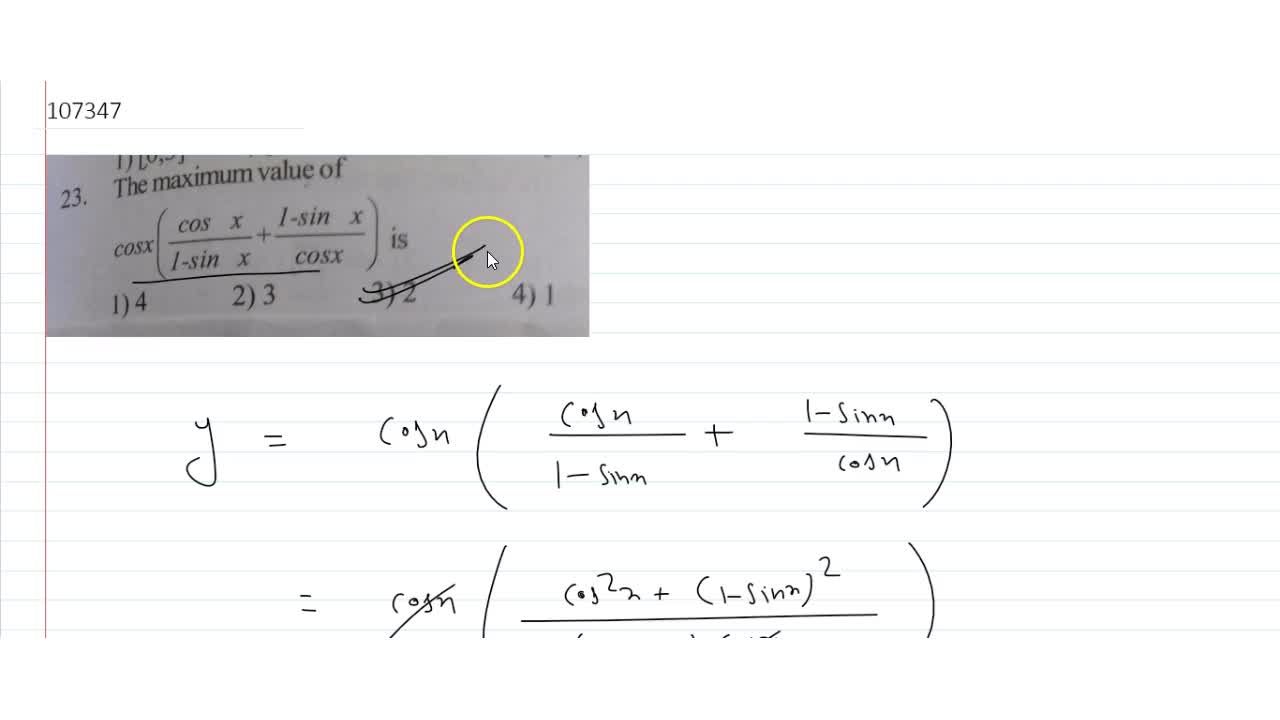 107347
23. The maximum value of
cosx(cos x/1-sin x + 1-sin x/cosx) is
1) 4 2) 3 3) 2 4) 1
y = cosx ( cosx/1-sinx + 1-sinx/cosx )
= cosx ( cos²x + (1-sinx)²